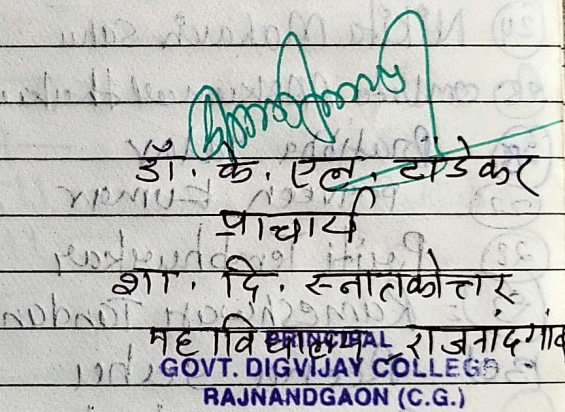 डॉ. के. एल. टांडेकर
प्राचार्य
शा. दि. स्नातकोत्तर
महाविद्यालय राजनांदगांव
PRINCIPAL
GOVT. DIGVIJAY COLLEGE
RAJNANDGAON (C.G.)